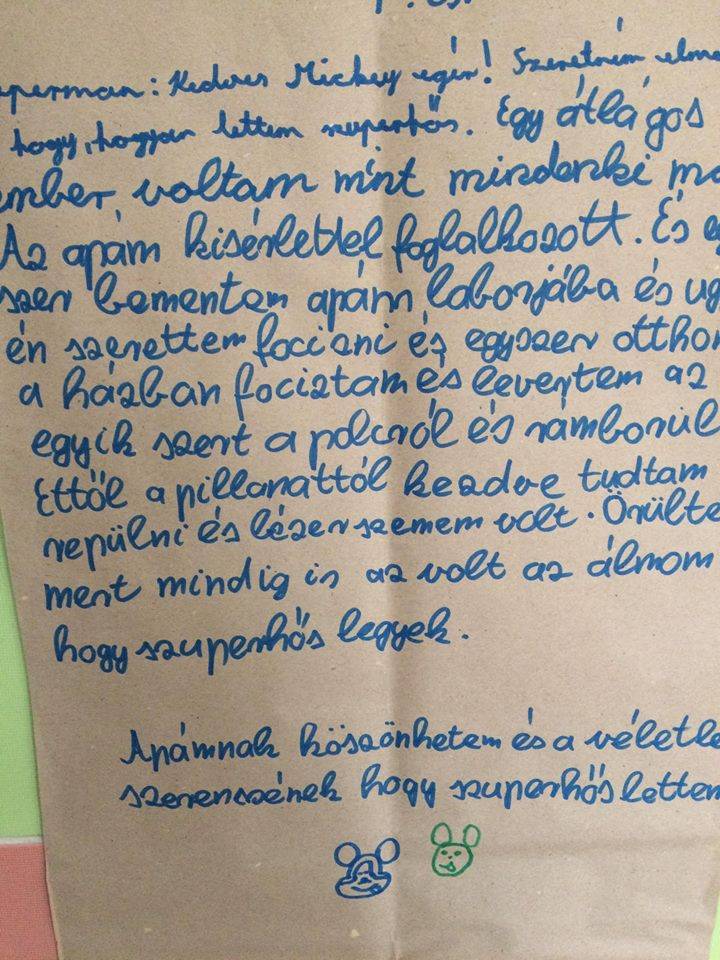 perman: Kedves Mickey egér! Szeretném elme
hogy, hogyan lettem szuperhős. Egy átlagos
ember voltam mint mindenki má
Az apám kisérlettel foglalkozott. És eg
szer bementem apám laborjába és ug
én szerettem focizni és egyszer otthon
a házban fociztam és levertem az
egyik szert a polcról és rámborul
Ettől a pillanattól kezdve tudtam
repülni és lézerszemem volt. Örülte
mert mindig is az volt az álmom
hogy szuperhős legyek.
Apámnak köszönhetem és a véletle
szerencsének hogy szuperhős lettem